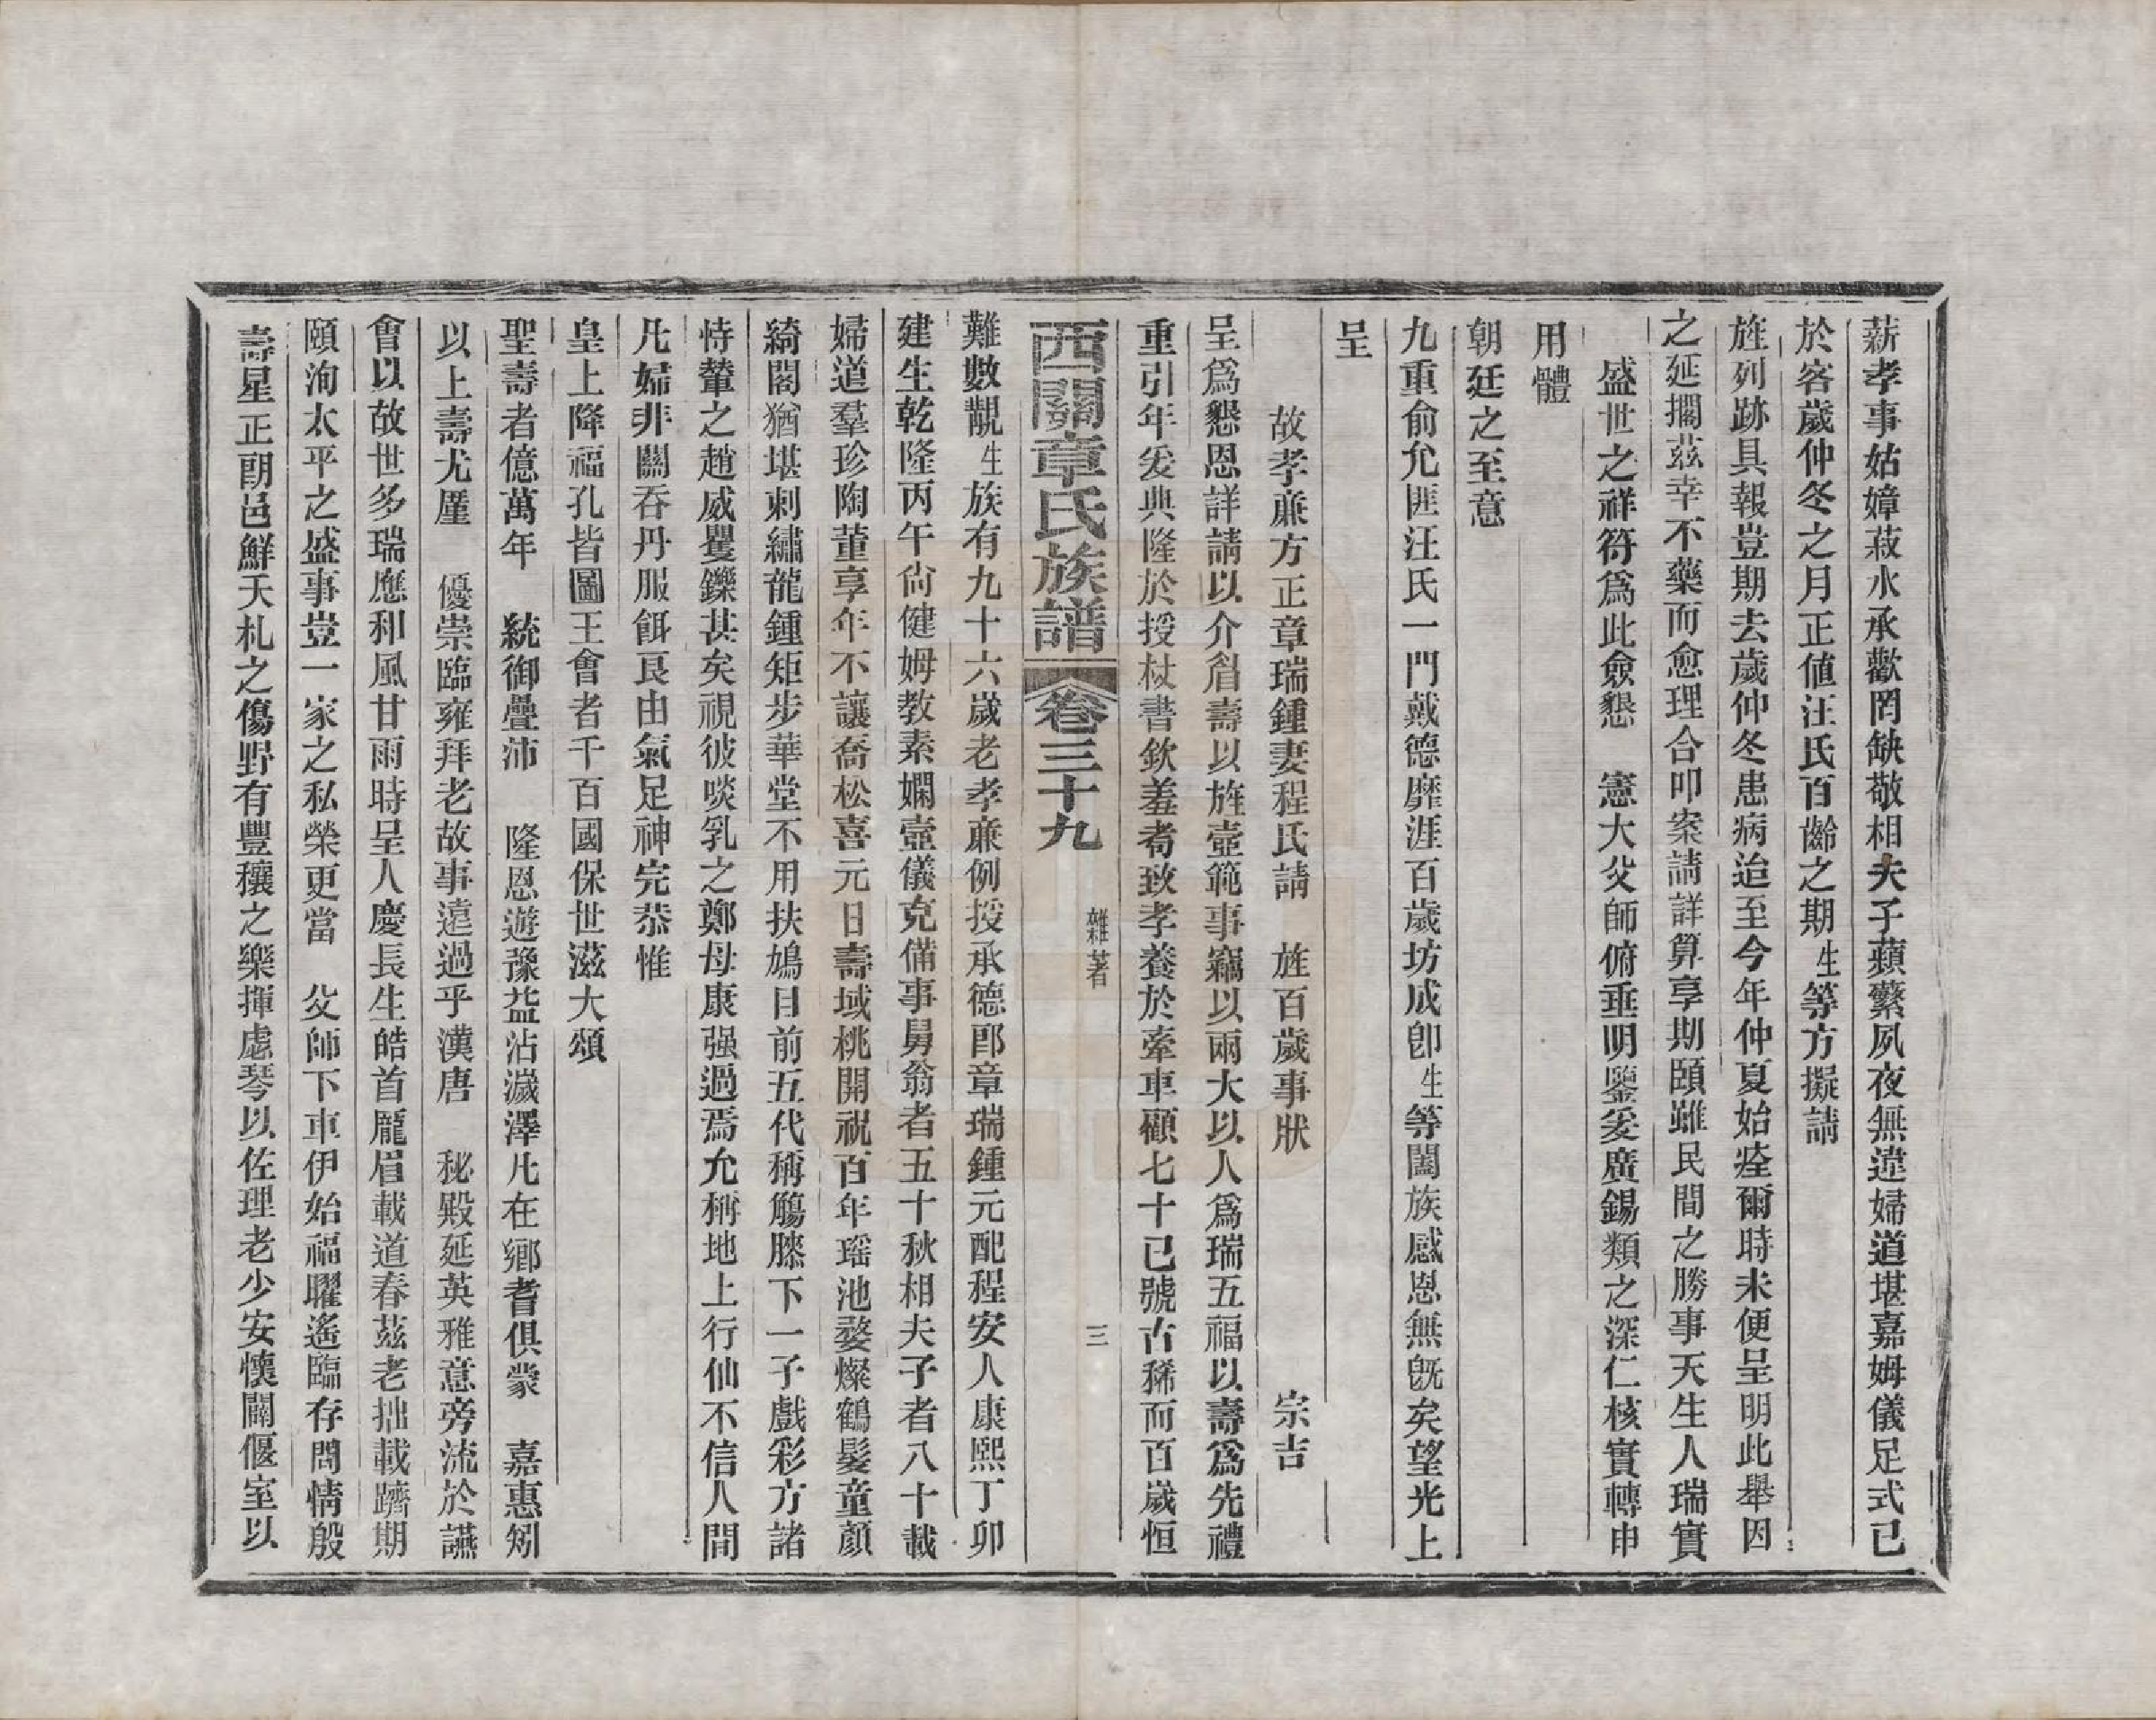 薪孝事姑嫜菽水承歡罔缺敬相夫子蘋蘩夙夜無違婦道堪嘉姆儀足式已
於客歲仲冬之月正値汪氏百齡之期生等方擬請
旌列跡具報豈期去歲仲冬患病治至今年仲夏始痊爾時未便呈明此舉因
之延擱茲幸不藥而愈理合叩案請詳算享期頤雖民間之勝事天生人瑞實
盛世之祥符爲此僉懇　憲大父師俯垂明鑒爰廣錫類之深仁核實轉申
用體
朝廷之至意
九重俞允匪汪氏一門戴德靡涯百歲坊成卽生等闔族感恩無旣矣望光上
呈
故孝廉方正章瑞鍾妻程氏請　旌百歲事狀　宗吉
呈爲懇恩詳請以介眉壽以旌壼範事竊以兩大以人爲瑞五福以壽爲先禮
重引年爰典隆於授杖書欽羞耇致孝養於牽車顧七十已號古稀而百歲恒
西關章氏族譜　卷三十九　雜著　三
難數覯生族有九十六歲老孝廉例授承德郎章瑞鍾元配程安人康熙丁卯
建生乾隆丙午尙健姆教素嫻壼儀克備事舅翁者五十秋相夫子者八十載
婦道羣珍陶董享年不讓喬松喜元日壽域桃開祝百年瑤池婺燦鶴髮童顏
綺閣猶堪刺繡龍鍾矩步華堂不用扶鳩目前五代稱觴膝下一子戲彩方諸
恃輦之趙威矍鑠甚矣視彼啖乳之鄭母康强過焉允稱地上行仙不信人間
凡婦非關吞丹服餌良由氣足神完恭惟
皇上降福孔皆圖王會者千百國保世滋大頌
聖壽者億萬年　統御疊沛　隆恩遊豫益沾濊澤凡在鄉耆俱蒙　嘉惠矧
以上壽尤厪　優崇臨雍拜老故事遠過乎漢唐　秘殿延英雅意旁流於讌
會以故世多瑞應和風甘雨時呈人慶長生皓首龐眉載道春茲老拙載躋期
頤洵太平之盛事豈一家之私榮更當　父師下車伊始福曜遙臨存問情殷
壽星正朗邑鮮夭札之傷野有豐穰之樂揮虙琴以佐理老少安懷闢偃室以